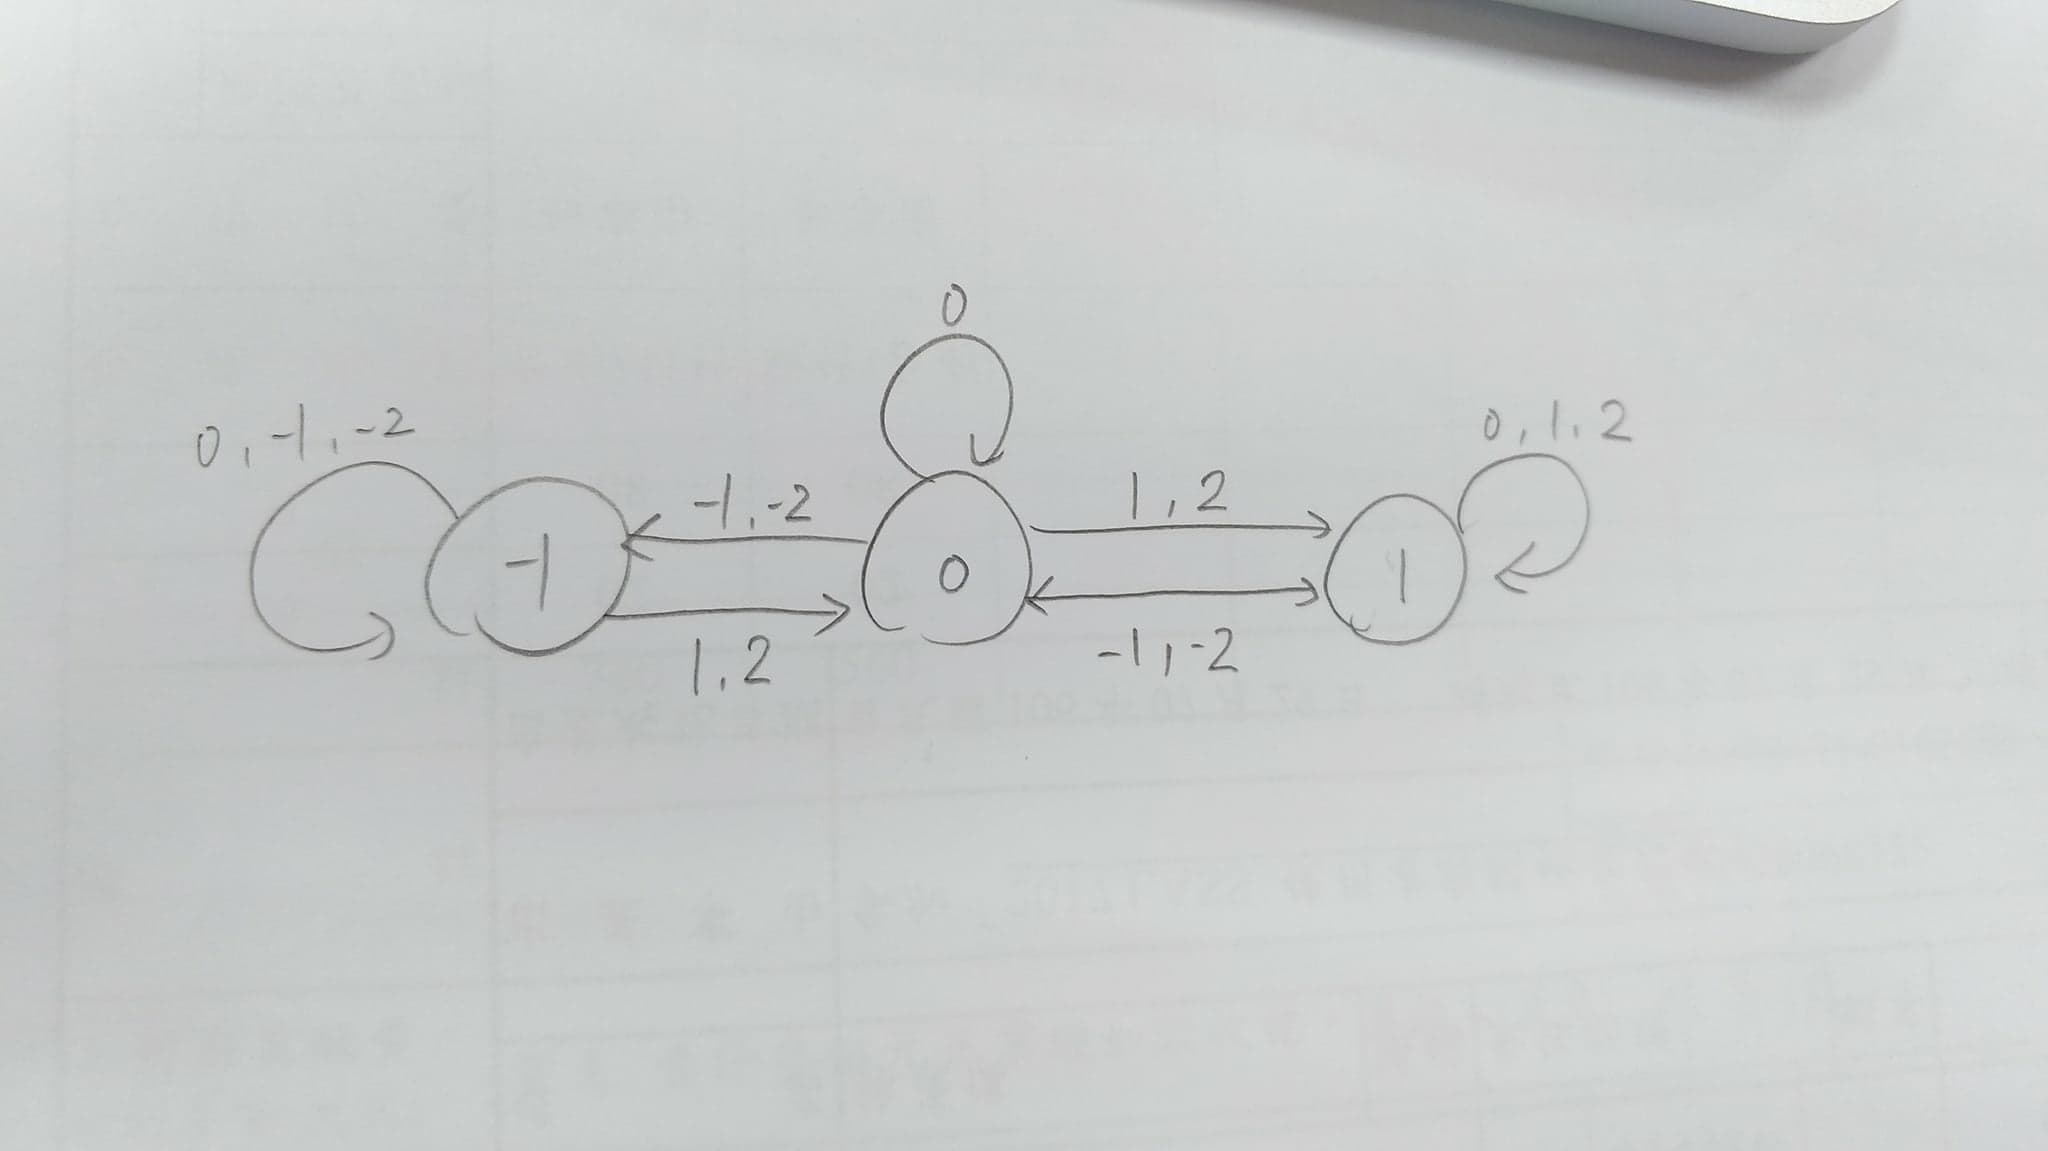 0
0, -1, -2
0, 1, 2
-1, -2
1, 2
-1
0
1
1, 2
-1, -2